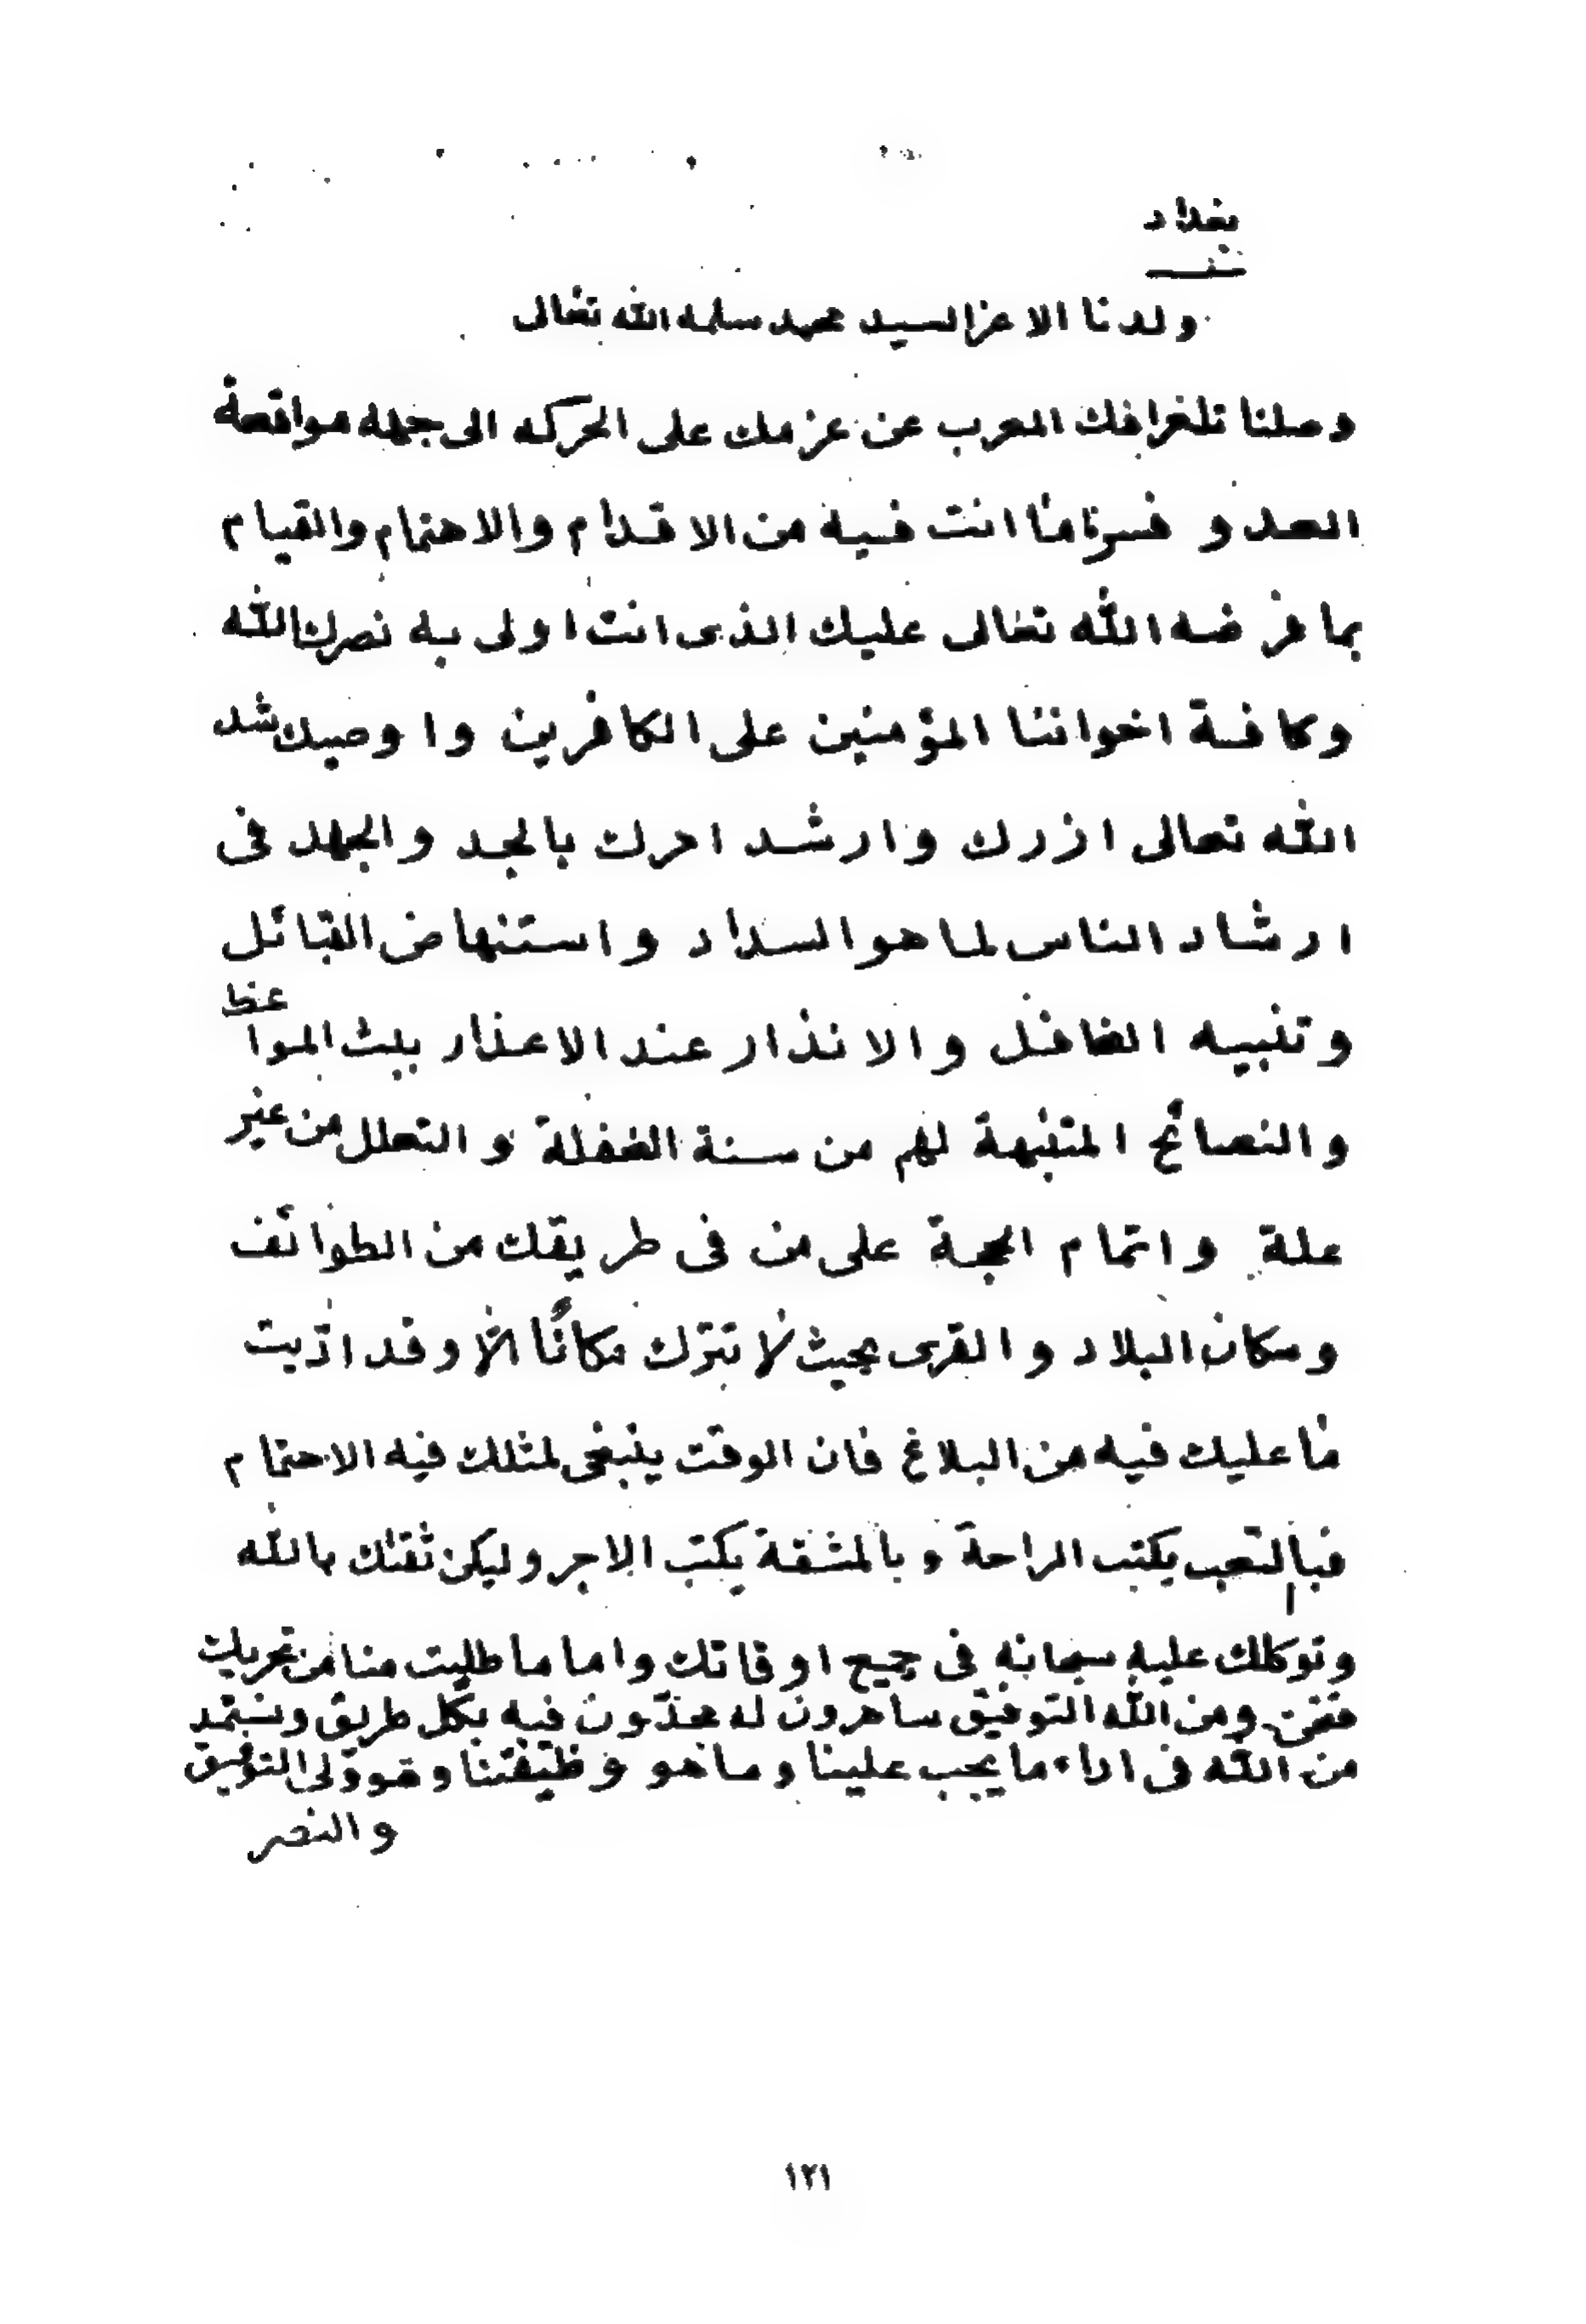 بغداد
ولدنا الاعز السيد محمد سلمه الله تعالى
وصلنا تلغرافك المعرب عن عزمك على الحركه الى جهة مواقعة
العدو فسرنا ما انت فيه من الاقدام والاهتمام والقيام
بما فرضه الله تعالى عليك الذى انت اولى به نصرك الله
وكافة اخواننا المؤمنين على الكافرين واوصيك شد
الله تعالى ازرك وارشد امرك بالجد والجهد فى
ارشاد الناس لما هو السداد واستنهاض القبائل
وتنبيه الغافل والانذار عند الاعذار ببث المواعظ
والنصائح المتنبهة لهم من سنة الغفلة والتعلل من غير
علة واتمام الحجة على من فى طريقك من الطوائف
وسكان البلاد والقرى بحيث لا تترك مكانًا الّا وقد ادّيت
ما عليك فيه من البلاغ فان الوقت ينبغى لمثلك فيه الاهتمام
فبالتعب يكتب الراحة وبالمشقة يكتب الاجر وليكن ثقتك بالله
وتوكلك عليه سبحانه فى جميع اوقاتك واما ما طلبت منا من تحريك
فنحن ومن الله التوفيق ساهرون له مجدّون فيه بكل طريق ونستمد
من الله فى اداء ما يجب علينا وما هو وظيفتنا وهو ولى التوفيق
والنصر
١٢١